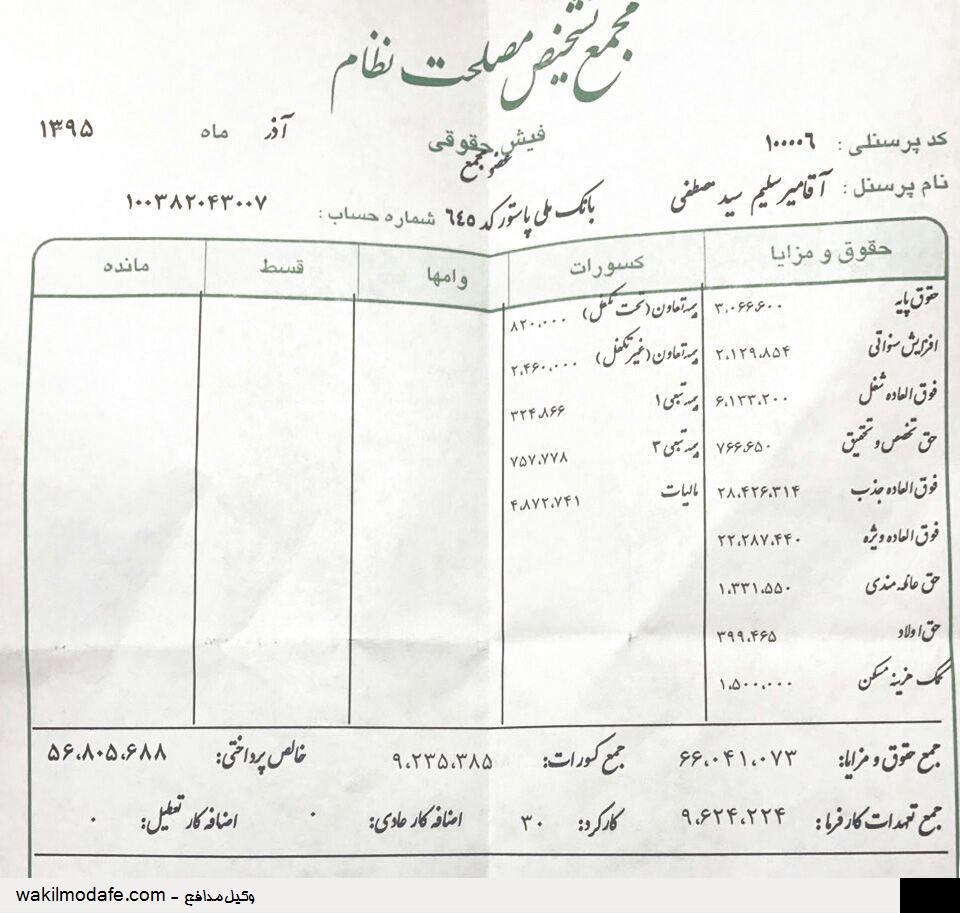 مجمع تشخیص مصلحت نظام
کد پرسنلی : ۱۰۰۰۰۶ فیش حقوقی آذر ماه ۱۳۹۵
عضو مجمع
نام پرسنل : آقامیرسلیم سید مصطفی بانک ملی پاستور کد ۶۴۵ شماره حساب : ۱۰۰۳۸۲۰۴۳۰۰۷
حقوق و مزایا کسورات وامها قسط مانده
حقوق پایه ۳،۰۶۶،۶۰۰ بیمه تعاون (تحت تکفل) ۸۲۰،۰۰۰
افزایش سنواتی ۲،۱۲۹،۸۵۴ بیمه تعاون (غیر تکفل) ۲،۴۶۰،۰۰۰
فوق العاده شغل ۶،۱۳۳،۲۰۰ بیمه تبعی ۱ ۳۲۴،۸۶۶
حق تخصص و تحقیق ۷۶۶،۶۵۰ بیمه تبعی ۳ ۷۵۷،۷۷۸
فوق العاده جذب ۲۸،۴۲۶،۳۱۴ مالیات ۴،۸۷۲،۷۴۱
فوق العاده ویژه ۲۲،۲۸۷،۴۴۰
حق عائله مندی ۱،۳۳۱،۵۵۰
حق اولاد ۳۹۹،۴۶۵
کمک هزینه مسکن ۱،۵۰۰،۰۰۰
جمع حقوق و مزایا: ۶۶،۰۴۱،۰۷۳ جمع کسورات: ۹،۲۳۵،۳۸۵ خالص پرداختی: ۵۶،۸۰۵،۶۸۸
جمع تعهدات کارفرما : ۹،۶۲۴،۲۲۴ کارکرد: ۳۰ اضافه کار عادی: ۰ اضافه کار تعطیل: ۰
wakilmodafe.com - وکیل مدافع